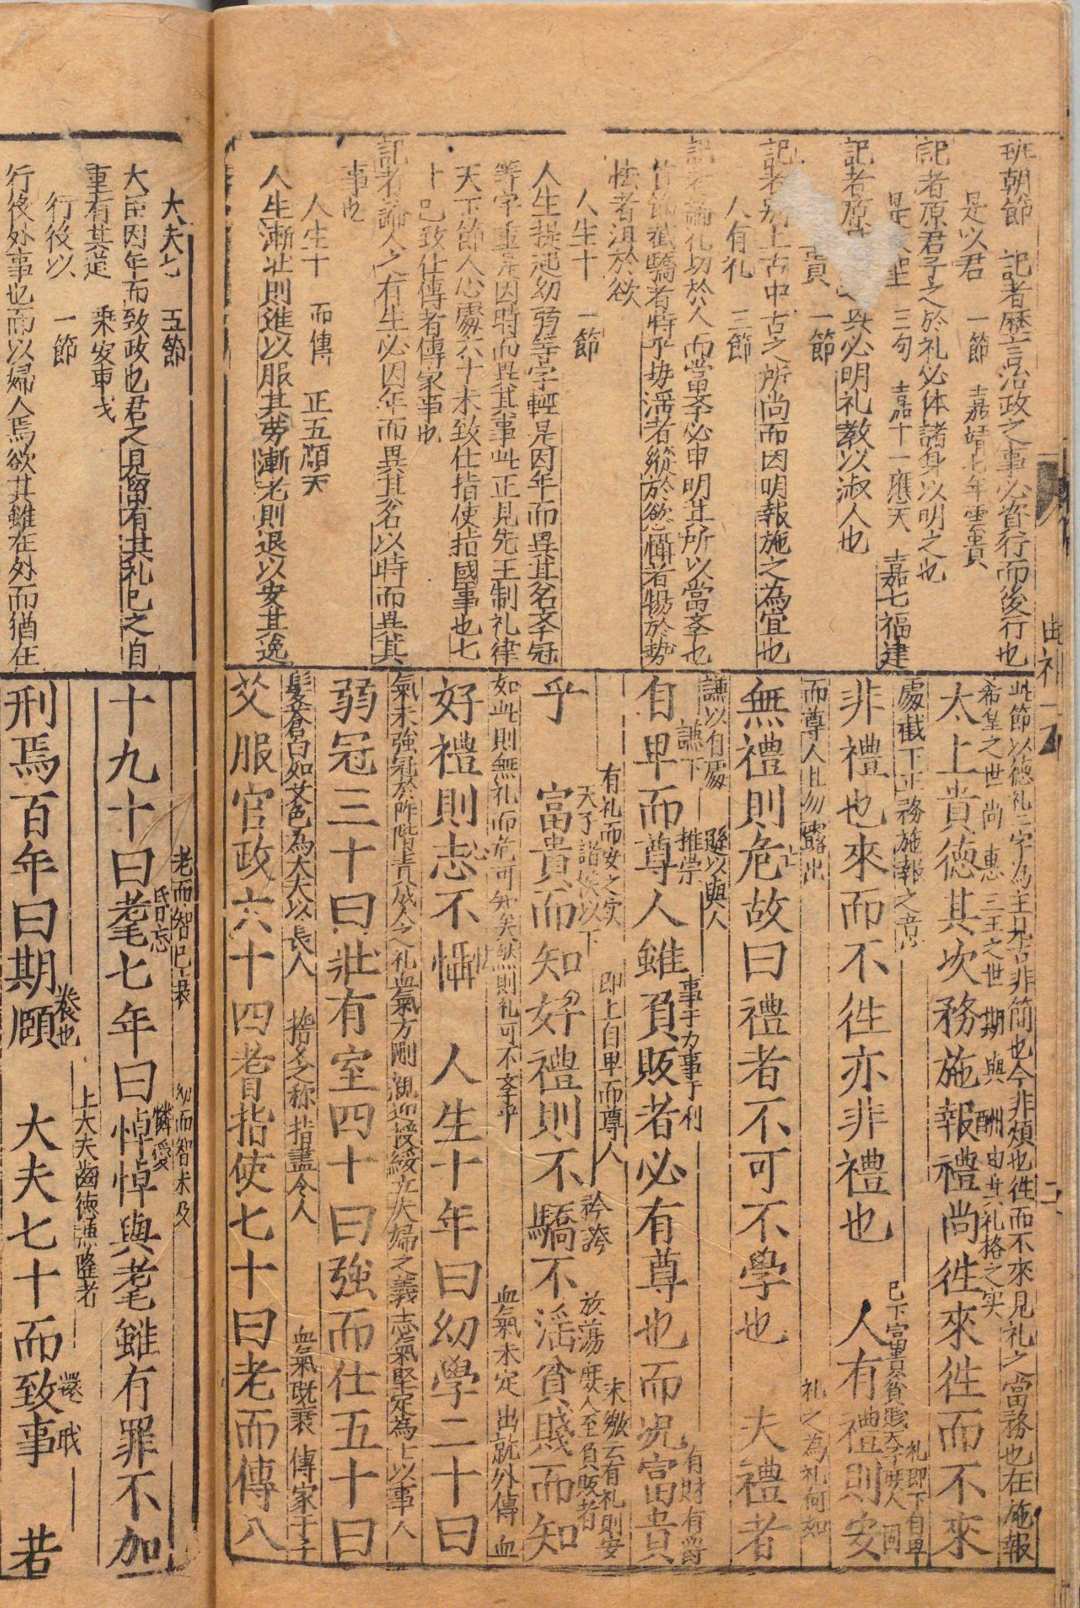 班朝節　記者歷言治政之事必資行而後行也
是以君　一節　嘉靖七年雲貴
記者原君子之於礼必体諸身以明之也
三句　嘉十一應天　嘉七福建
必明礼教以淑人也
一節
上古中古之所尚而因明報施之為宜也
人有礼　三節
論礼切於人而當孝必申明其所以當孝也
驕者恃乎势淫者縱於慾懾者惕於勢
怯者沮於欲
人生十　一節
人生提起幼弱等字輕是因年而異其名孝冠
等字重是因時而異其事此正見先王制礼律
天下節人心處六十未致仕指使指國事也七
十已致仕傳者傳家事也
記者論人之有生必因年而異其名以時而異其
事也
人生十　而傳　正五順天
人生漸壯則進以服其勞漸老則退以安其逸
此節以德礼二字為主見古非簡也今非煩也徃而不來見礼之當務也在施報
希皇之世尚　惠　三王之世　期與　酬由其礼格之实
太上貴德其次務施報禮尚徃來徃而不來
處截下正務施報之意
非禮也來而不徃亦非禮也　人有禮則安
而尊人且勿露出　礼之為礼何如
無禮則危故曰禮者不可不學也　夫禮者
謙以有處　謙下　推崇　遜以與人　事于力事于利　有財有爵
自卑而尊人雖負販者必有尊也而况富貴
有礼而安之实　天子諸侯以下　即上自卑而尊人　矜誇　放蕩　庶人至負販者　末繳云有礼則安
乎　富貴而知好禮則不驕不淫貧賤而知
如此則無礼而危可知矣然則礼可不孝乎　血氣未定　出就外傳　血
好禮則志不懾　人生十年曰幼學二十曰
氣未強冠於阼階責成人之礼血氣方剛親迎授綏立夫婦之義志氣堅定為士以事人
弱冠三十曰壯有室四十曰強而仕五十曰
髮蒼白如艾色為大夫以長人　耆名之称指盡令人　血氣既衰　傳家于子
艾服官政六十四耆指使七十曰老而傳八
大夫七　五節
大臣因年而致政也君之見留有其礼已之自
重有其定　乘安車戈
行役以　一節
行役外事也而以婦人焉欲其雖在外而猶在
老而智已衰　昏忘　幼而智未及　憐愛
十九十曰耄七年曰悼悼與耄雖有罪不加
養也　上大夫齒德憑隆者
刑焉百年曰期頤　大夫七十而致事　若